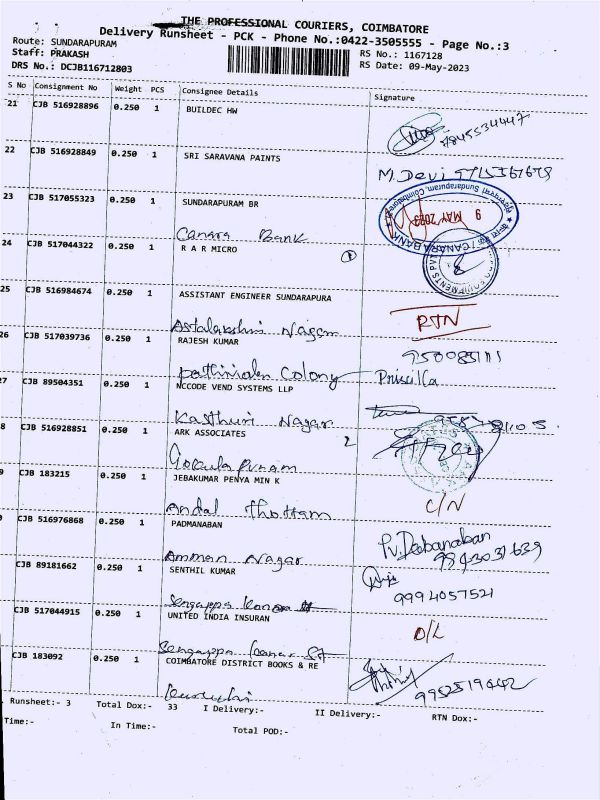 THE PROFESSIONAL COURIERS, COIMBATORE
Delivery Runsheet - PCK - Phone No.:0422-3505555 - Page No.:3
Route: SUNDARAPURAM
Staff: PRAKASH
DRS No.: DCJB116712803
RS No.: 1167128
RS Date: 09-May-2023
S No Consignment No Weight PCS Consignee Details Signature
21 CJB 516928896 0.250 1 BUILDEC HW
7845534447
22 CJB 516928849 0.250 1 SRI SARAVANA PAINTS
M. Devi
23 CJB 517055323 0.250 1 SUNDARAPURAM BR
9 MAY 2023
CANARA BANK
Canara Bank
24 CJB 517044322 0.250 1 R A R MICRO
25 CJB 516984674 0.250 1 ASSISTANT ENGINEER SUNDARAPURA
RTN
Astalakshmi Nagar
26 CJB 517039736 0.250 1 RAJESH KUMAR
Colony Priscilla
7 CJB 89504351 0.250 1 NCCODE VEND SYSTEMS LLP
Kasthuri Nagar
8 CJB 516928851 0.250 1 ARK ASSOCIATES
2
Gokula Puram
9 CJB 183215 0.250 1 JEBAKUMAR PENYA MIN K
C/N
Andal Thottam
0 CJB 516976868 0.250 1 PADMANABAN
9843031639
Amman Nagar
CJB 89181662 0.250 1 SENTHIL KUMAR
9994057521
Sengappa
CJB 517044915 0.250 1 UNITED INDIA INSURAN
D/L
Sengappa St
CJB 183092 0.250 1 COIMBATORE DISTRICT BOOKS & RE
Runsheet:- 3 Total Dox:- 33 I Delivery:- II Delivery:- RTN Dox:-
Time:- In Time:- Total POD:-